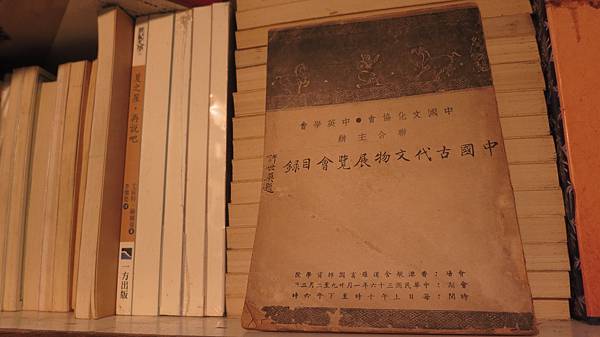 中國文化協會●中英學會
聯合主辦
中國古代文物展覽會目錄
許世英題
會場：香港般含道羅富國師資學院
會期：中華民國三十六年一月廿九至二月三日
時間：每日上午十時至下午六時
夏之屋，再說吧
方出版